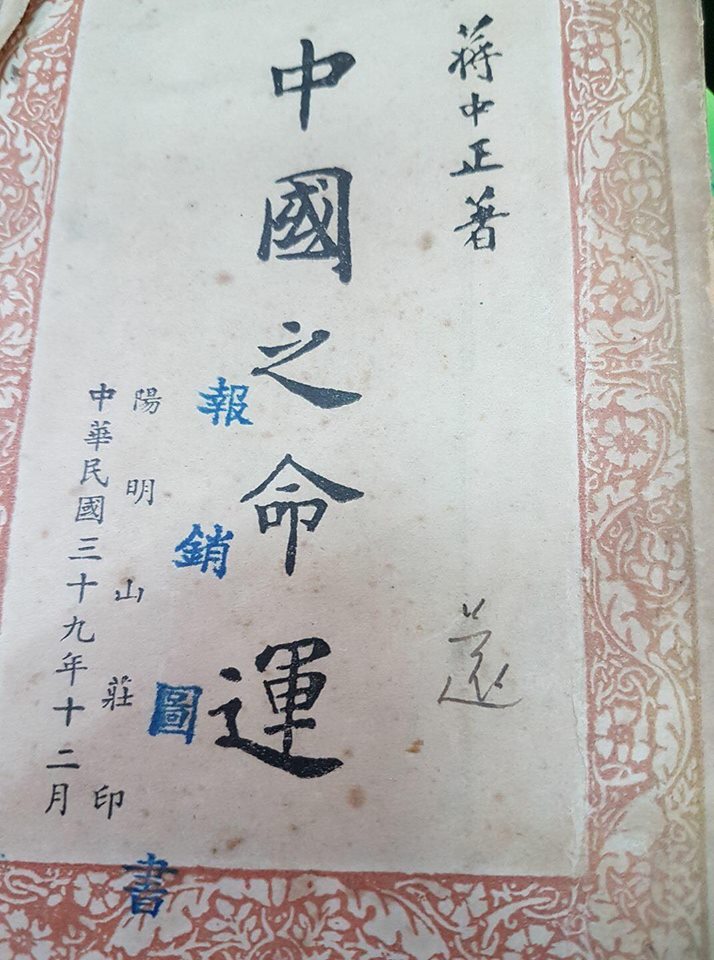 蔣中正著
中國之命運
報銷圖書
陽明山莊印
中華民國三十九年十二月